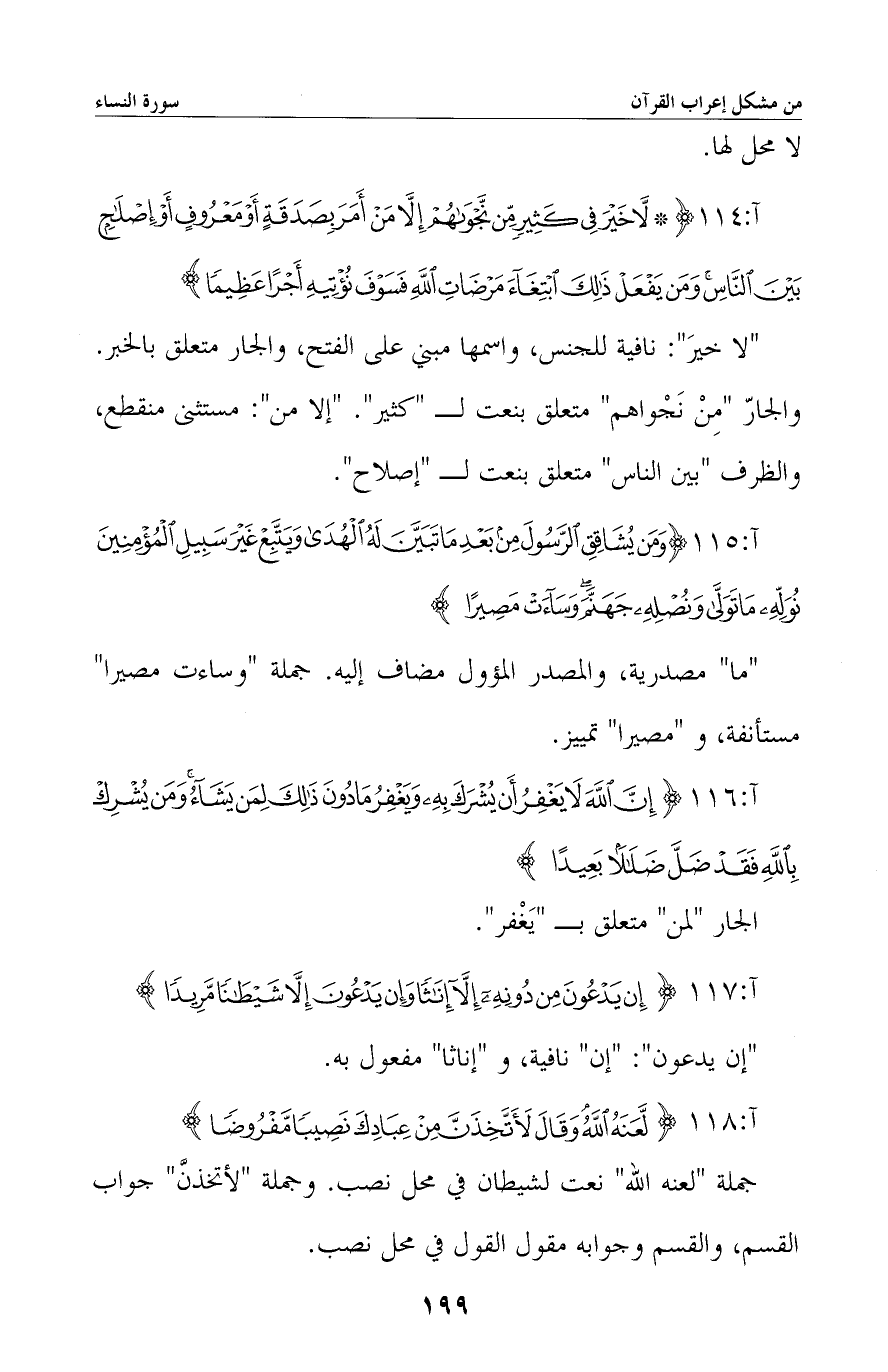 من مشكل إعراب القرآن سورة النساء
لا محل لها.
آ:١١٤ ﴿ * لَّا خَيْرَ فِي كَثِيرٍ مِّن نَّجْوَىٰهُمْ إِلَّا مَنْ أَمَرَ بِصَدَقَةٍ أَوْ مَعْرُوفٍ أَوْ إِصْلَٰحٍ
بَيْنَ ٱلنَّاسِ ۚ وَمَن يَفْعَلْ ذَٰلِكَ ٱبْتِغَآءَ مَرْضَاتِ ٱللَّهِ فَسَوْفَ نُؤْتِيهِ أَجْرًا عَظِيمًا ﴾
"لا خيرَ": نافية للجنس، واسمها مبني على الفتح، والجار متعلق بالخبر.
والجارّ "مِنْ نَجْواهم" متعلق بنعت لـ "كثير". "إلا من": مستثنى منقطع،
والظرف "بين الناس" متعلق بنعت لـ "إصلاح".
آ:١١٥ ﴿ وَمَن يُشَاقِقِ ٱلرَّسُولَ مِنۢ بَعْدِ مَا تَبَيَّنَ لَهُ ٱلْهُدَىٰ وَيَتَّبِعْ غَيْرَ سَبِيلِ ٱلْمُؤْمِنِينَ
نُوَلِّهِۦ مَا تَوَلَّىٰ وَنُصْلِهِۦ جَهَنَّمَ ۖ وَسَآءَتْ مَصِيرًا ﴾
"ما" مصدرية، والمصدر المؤول مضاف إليه. جملة "وساءت مصيرا"
مستأنفة، و "مصيرا" تمييز.
آ:١١٦ ﴿ إِنَّ ٱللَّهَ لَا يَغْفِرُ أَن يُشْرَكَ بِهِۦ وَيَغْفِرُ مَا دُونَ ذَٰلِكَ لِمَن يَشَآءُ ۚ وَمَن يُشْرِكْ
بِٱللَّهِ فَقَدْ ضَلَّ ضَلَٰلًۢا بَعِيدًا ﴾
الجار "لمن" متعلق بـ "يَغْفر".
آ:١١٧ ﴿ إِن يَدْعُونَ مِن دُونِهِۦٓ إِلَّآ إِنَٰثًا وَإِن يَدْعُونَ إِلَّا شَيْطَٰنًا مَّرِيدًا ﴾
"إن يدعون": "إن" نافية، و "إناثا" مفعول به.
آ:١١٨ ﴿ لَّعَنَهُ ٱللَّهُ ۘ وَقَالَ لَأَتَّخِذَنَّ مِنْ عِبَادِكَ نَصِيبًا مَّفْرُوضًا ﴾
جملة "لعنه الله" نعت لشيطان في محل نصب. وجملة "لأتخذنَّ" جواب
القسم، والقسم وجوابه مقول القول في محل نصب.
١٩٩